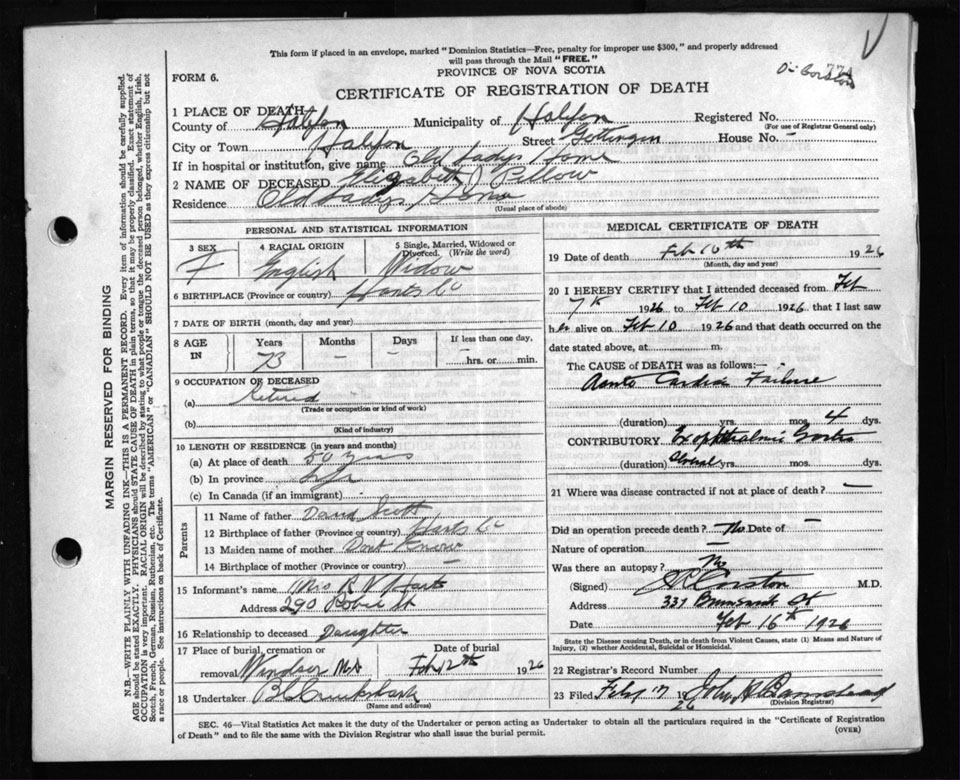 This form if placed in an envelope, marked "Dominion Statistics—Free, penalty for improper use $300," and properly addressed
will pass through the Mail "FREE."
PROVINCE OF NOVA SCOTIA
FORM 6.
CERTIFICATE OF REGISTRATION OF DEATH
1 PLACE OF DEATH
County of Halifax Municipality of Halifax Registered No.
(For use of Registrar General only)
City or Town Halifax Street Gottingen House No. –
If in hospital or institution, give name Old Ladys Home
2 NAME OF DECEASED Elizabeth J Pellow
Residence Old Ladys Home
(Usual place of abode)
PERSONAL AND STATISTICAL INFORMATION
3 SEX 4 RACIAL ORIGIN 5 Single, Married, Widowed or
Divorced. (Write the word)
F English Widow
6 BIRTHPLACE (Province or country) Hants Co
7 DATE OF BIRTH (month, day and year)
8 AGE IN Years Months Days If less than one day,
73 – – – hrs. or min.
9 OCCUPATION OF DECEASED
(a) Retired
(Trade or occupation or kind of work)
(b)
(Kind of industry)
10 LENGTH OF RESIDENCE (in years and months)
(a) At place of death 50 years
(b) In province Life
(c) In Canada (if an immigrant) –
Parents
11 Name of father David Scott
12 Birthplace of father (Province or country) Hants Co
13 Maiden name of mother Dont Know
14 Birthplace of mother (Province or country) –
15 Informant's name Mrs R V
Address 290 Robie St
16 Relationship to deceased Daughter
17 Place of burial, cremation or Date of burial
removal Windsor NS Feb 12th 1926
18 Undertaker
(Name and address)
MEDICAL CERTIFICATE OF DEATH
19 Date of death Feb 10th 1926
(Month, day and year)
20 I HEREBY CERTIFY that I attended deceased from Feb
7th 1926 to Feb 10 1926 that I last saw
her alive on Feb 10 1926 and that death occurred on the
date stated above, at m.
The CAUSE OF DEATH was as follows:—
Acute Cardiac Failure
(duration) yrs. mos. 4 dys.
CONTRIBUTORY Exophthalmic Goitre
(duration) Several yrs. mos. dys.
21 Where was disease contracted if not at place of death? –
Did an operation precede death? No Date of –
Nature of operation –
Was there an autopsy? No
(Signed) Corston M.D.
Address 337 Brunswick St
Date Feb 16th 1926
State the Disease causing Death, or in death from Violent Causes, state (1) Means and Nature of
Injury, (2) whether Accidental, Suicidal or Homicidal.
22 Registrar's Record Number
23 Filed Feby 17 1926 John
(Division Registrar)
SEC. 46—Vital Statistics Act makes it the duty of the Undertaker or person acting as Undertaker to obtain all the particulars required in the "Certificate of Registration
of Death" and to file the same with the Division Registrar who shall issue the burial permit.
(OVER)
MARGIN RESERVED FOR BINDING
N.B.—WRITE PLAINLY WITH UNFADING INK—THIS IS A PERMANENT RECORD. Every item of information should be carefully supplied.
AGE should be stated EXACTLY. PHYSICIANS should STATE CAUSE OF DEATH in plain terms, so that it may be properly classified. Exact statement of
OCCUPATION is very important. RACIAL ORIGIN will be described by stating to what people or tongue the deceased person belonged, whether English, Irish,
Scotch, French, German, Russian, Ruthenian, etc. The terms "AMERICAN" or "CANADIAN" SHOULD NOT BE USED as they express citizenship but not
a race or people. See instructions on back of Certificate.